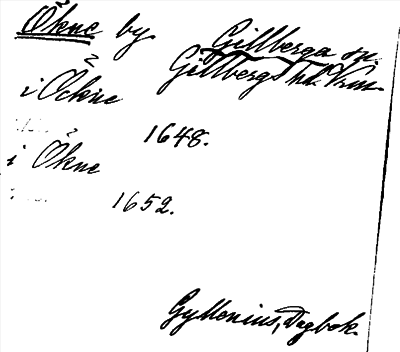 Ökne by Gillberga sn.
Gillbergs hd. Vrm.
i Öckne
1648.
i Ökne
1652.
Gyllenius, Dagbok.